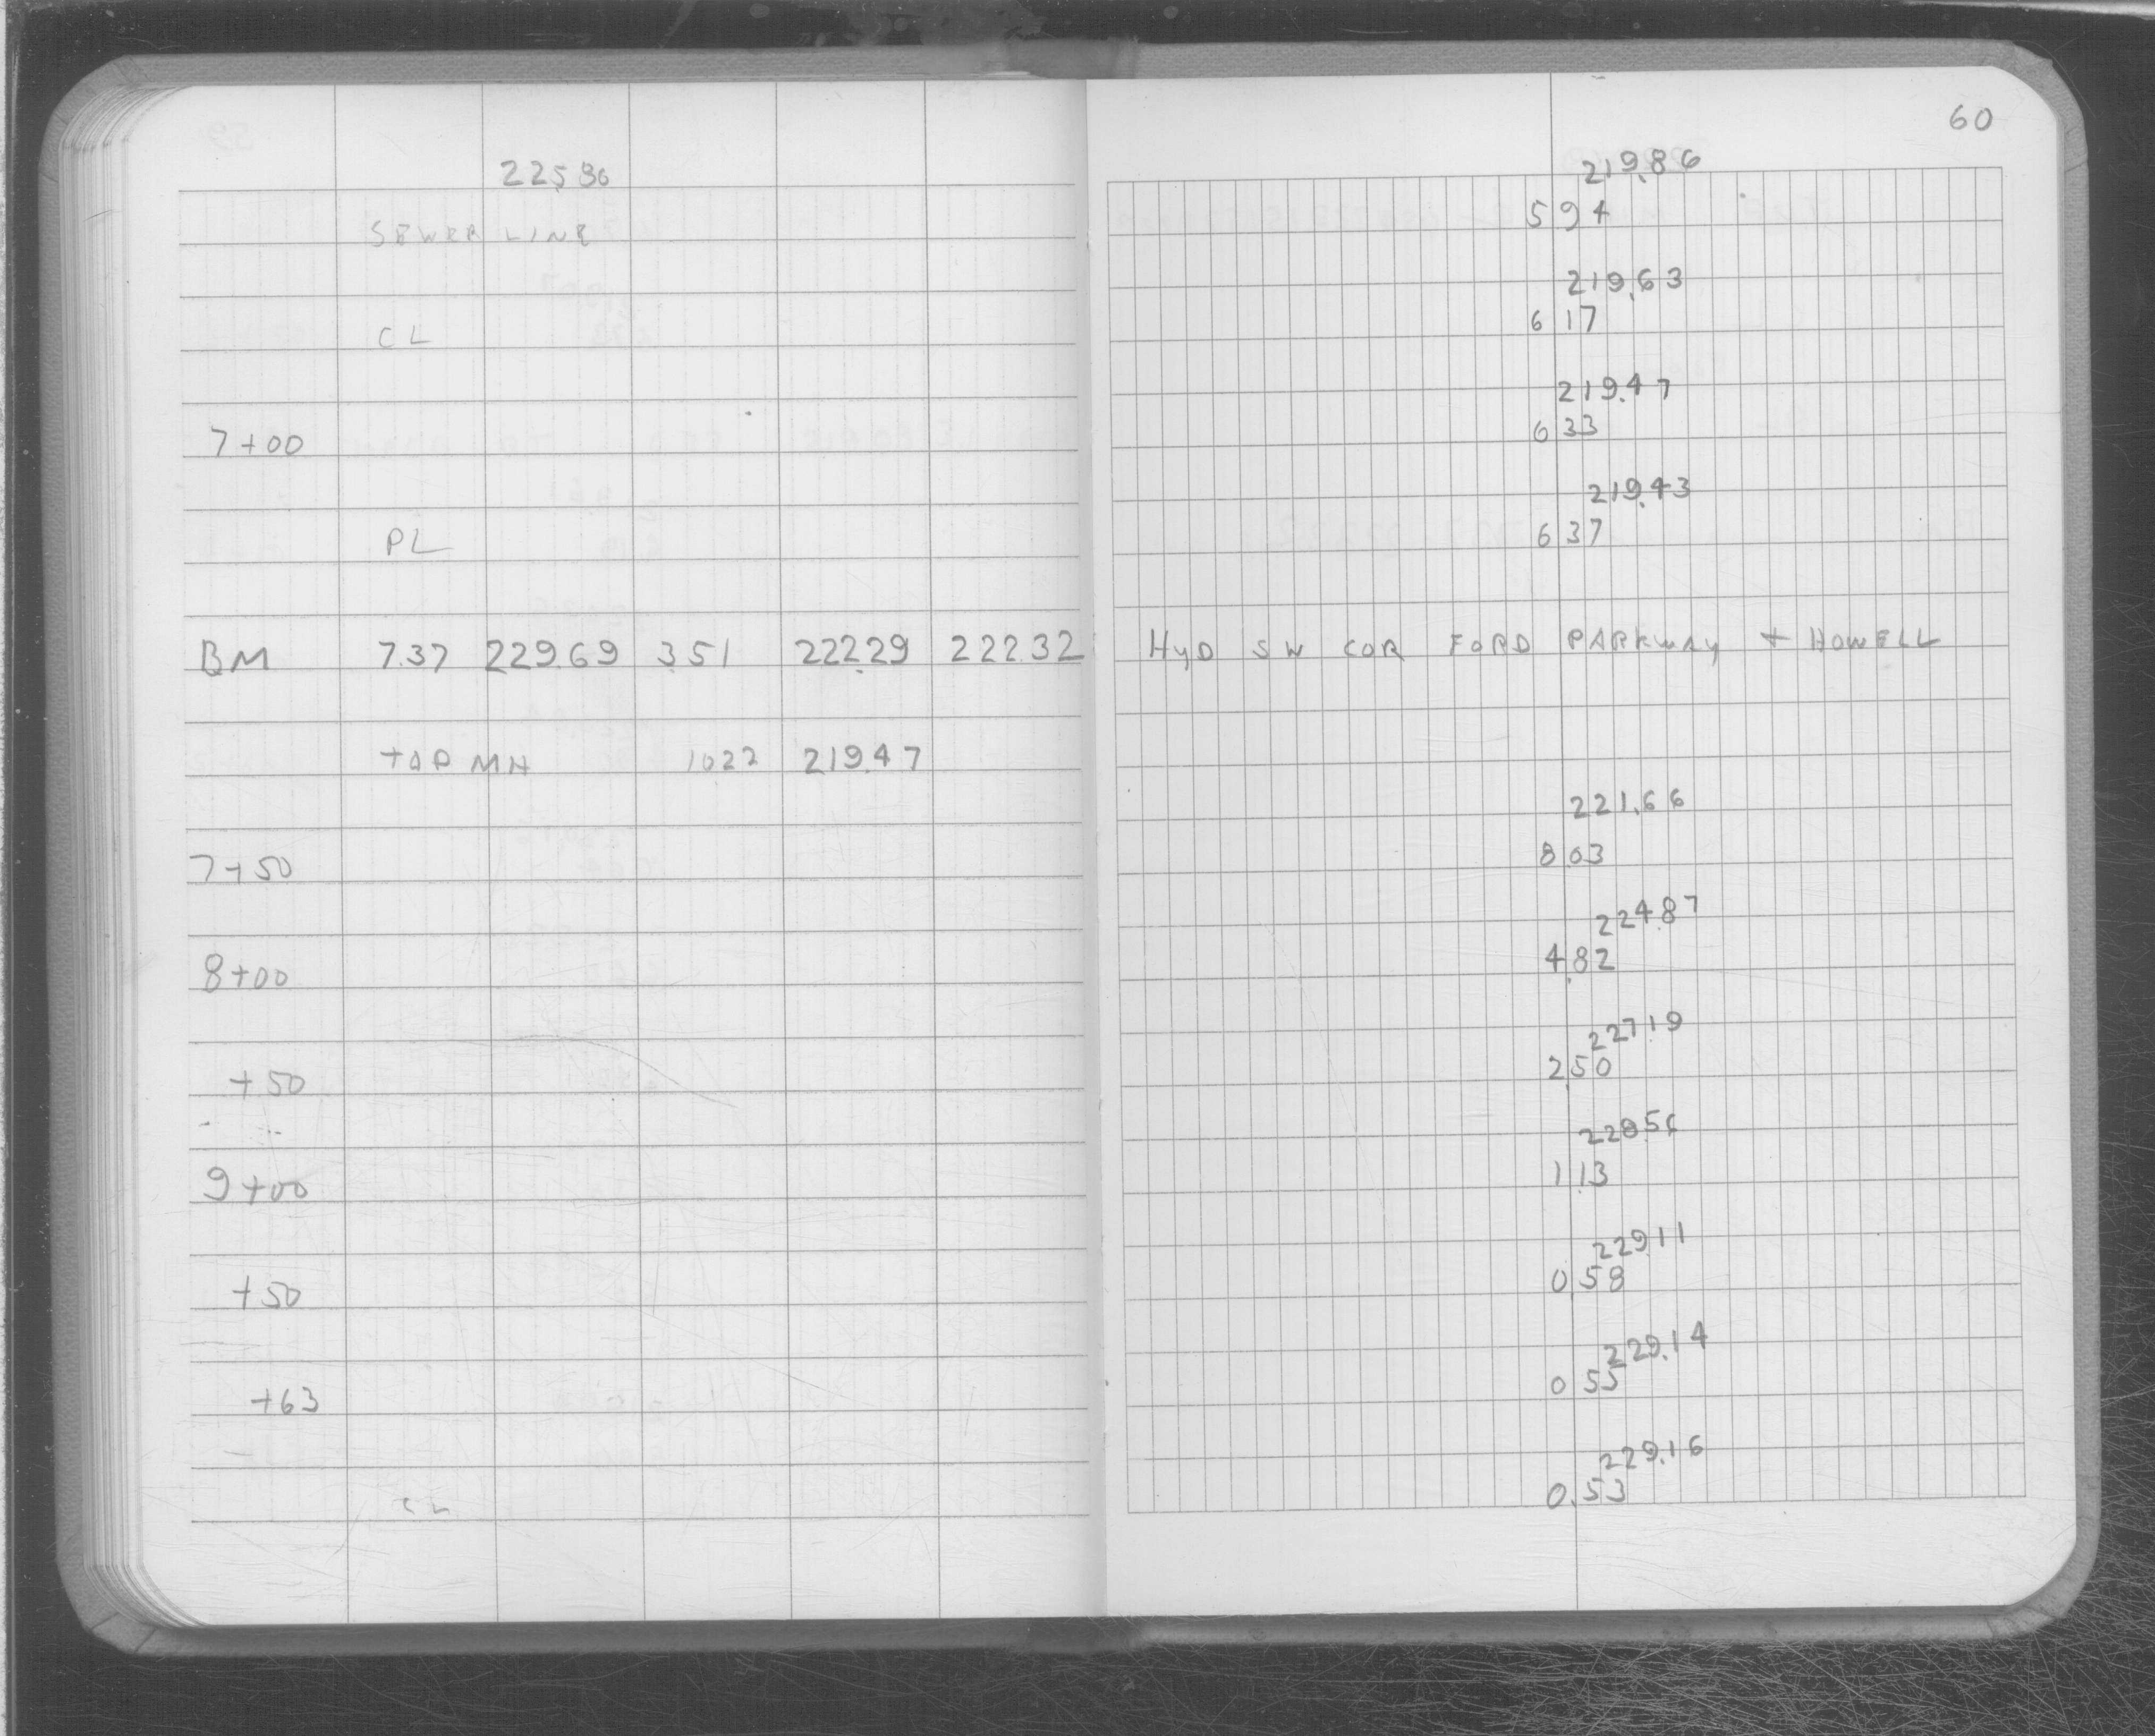 60
225.80 219.86
SEWER LINE 5 94
219.63
CL 6 17
219.47
7+00 6 33
219.43
PL 6 37
BM 7.37 229.69 3.51 222.29 222.32 HYD SW COR FORD PARKWAY + HOWELL
TOP MH 10.22 219.47
221.66
7+50 8 03
224.87
8+00 4.82
227.19
+50 2.50
228.56
9+00 1.13
229.11
+50 0.58
229.14
+63 0 55
229.16
CL 0.53